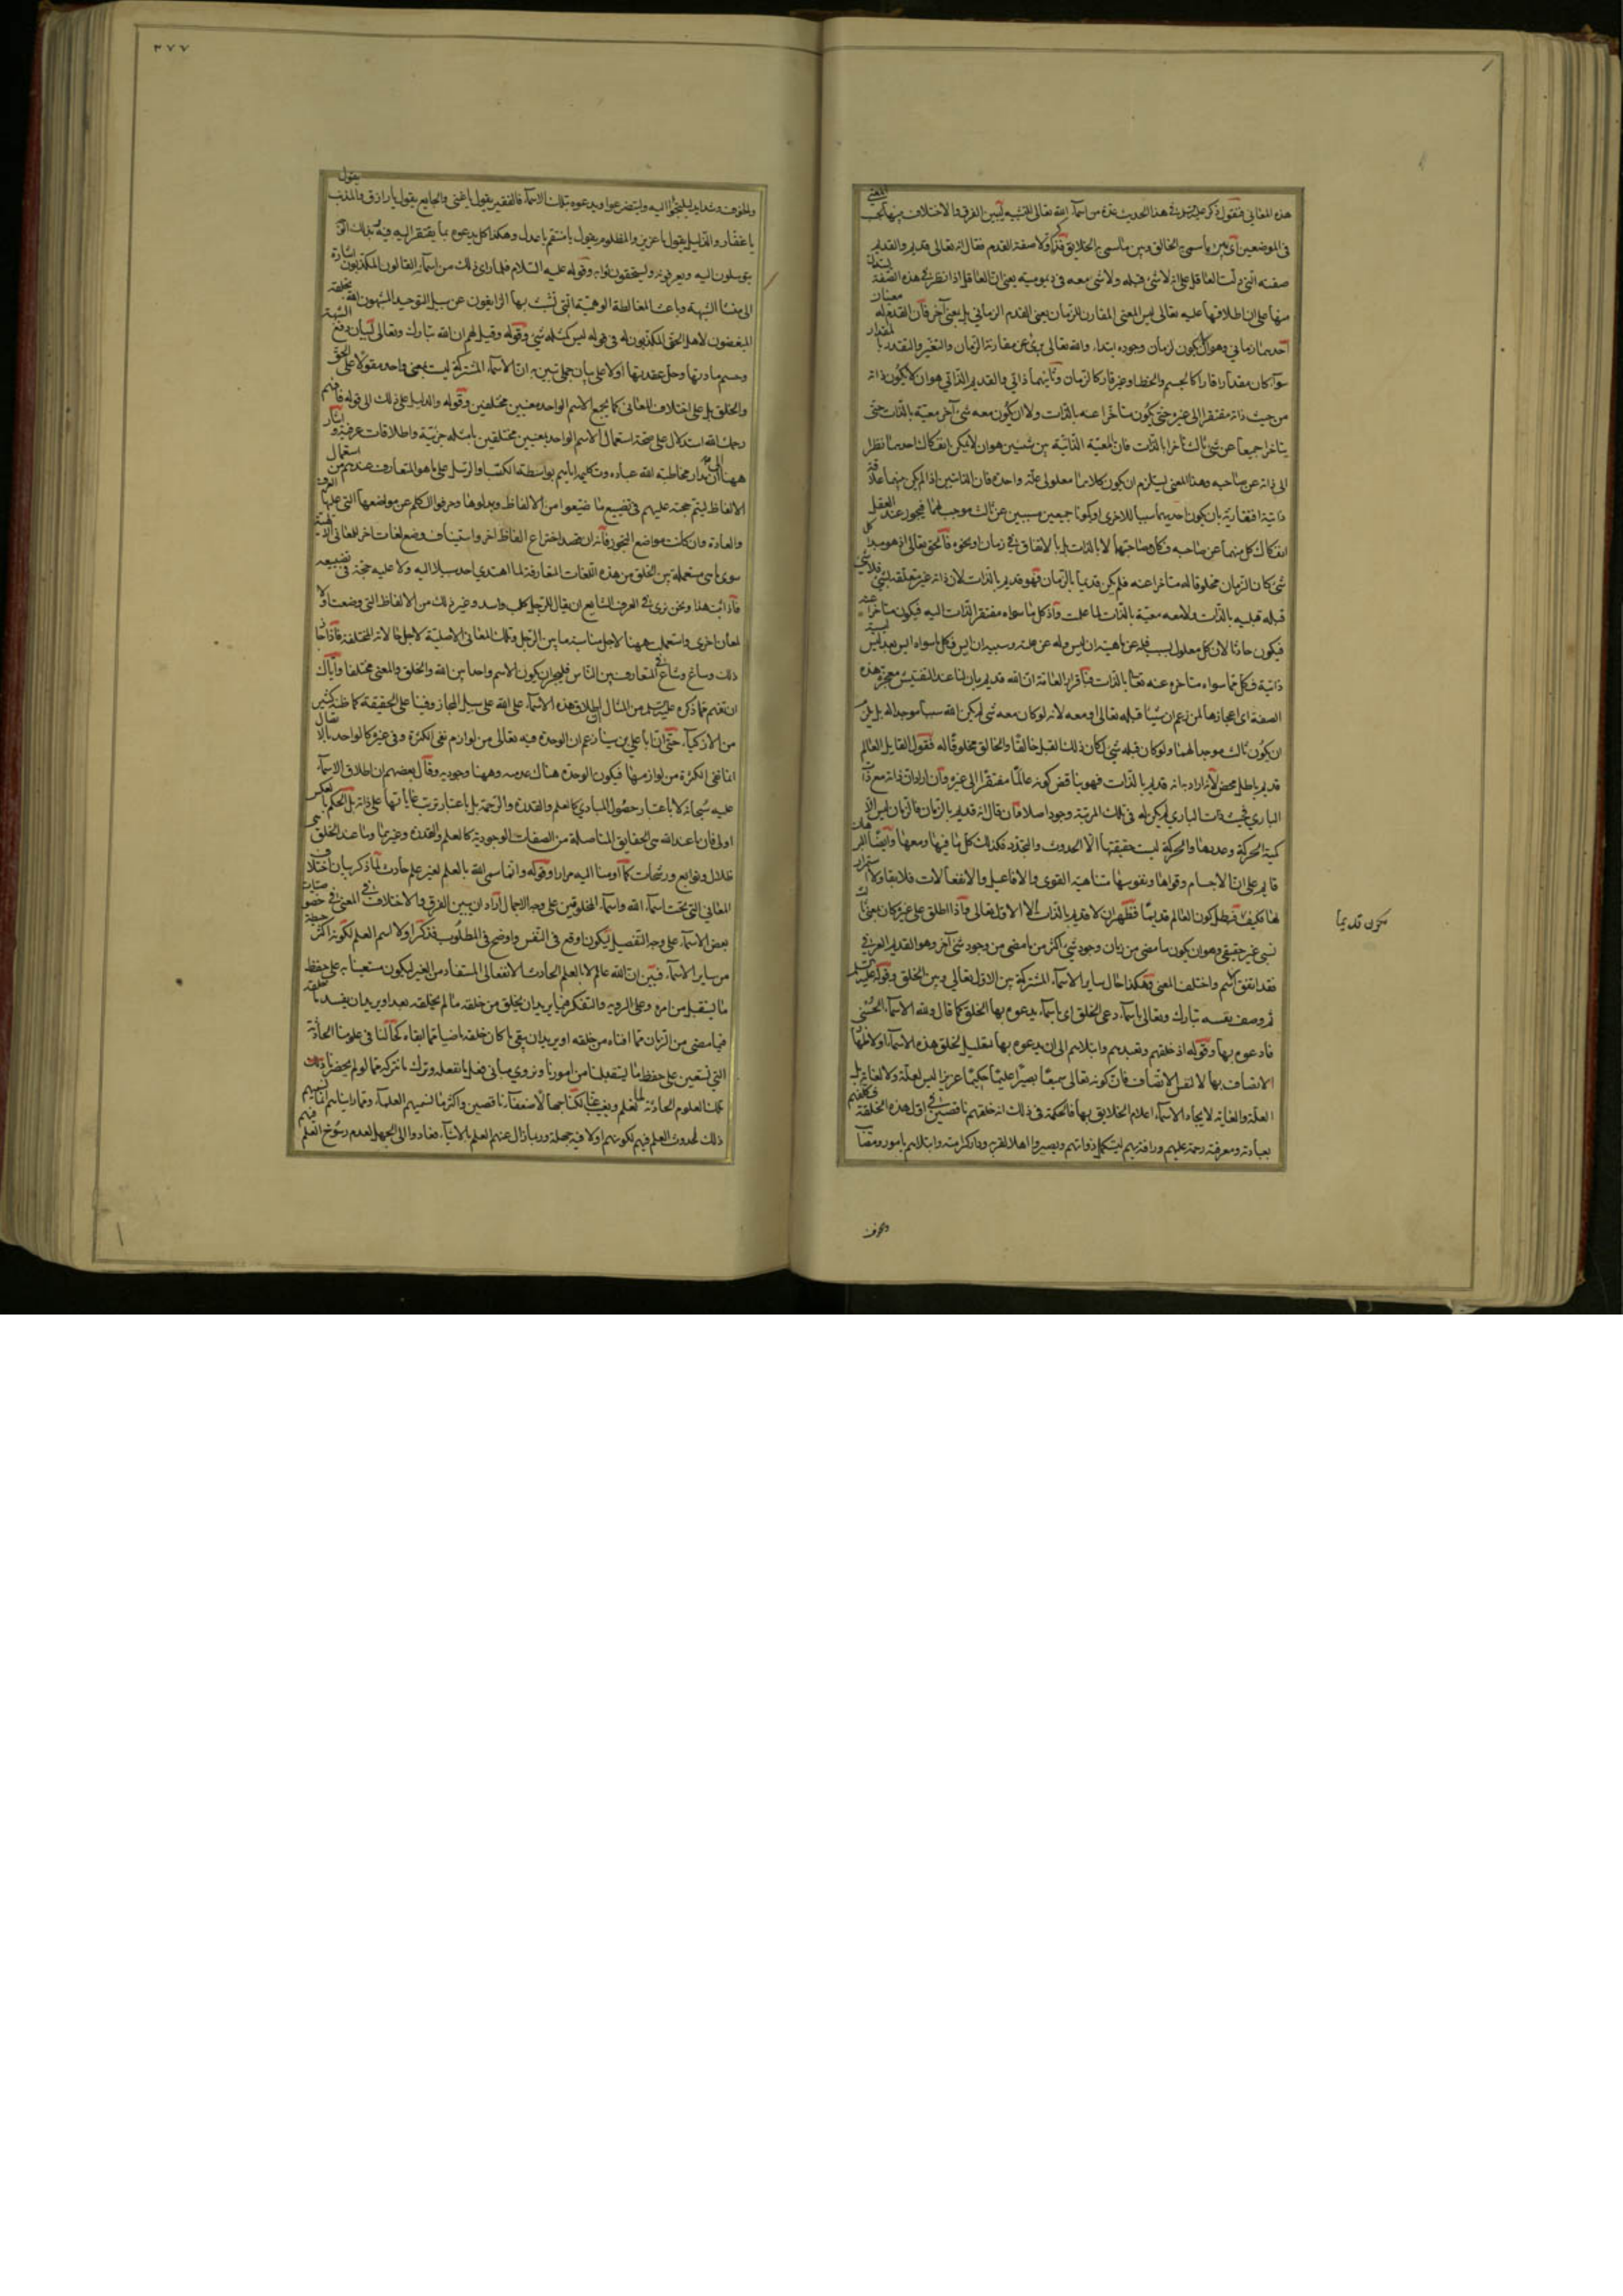 هذه المعاني فنقول ذكر عليه السلام في هذا الحديث عدة من اسماء الله تعالى للتنبيه ليبين الفرق والاختلاف بينها بحسب المعنى
في الموضعين اى بين ما سمى به الخالق وبين ما سمى به الخلايق فذكر اولا صفة القدم فقال انه تعالى قديم والقديم
صفته التي دلت العاقل على انه لا شئ قبله ولا شئ معه في ديموميته يعنى ان العاقل اذا نظر في هذه الصفة يستدل
منها على ان اطلاقها عليه تعالى ليس المعنى المقارن للزمان يعنى القدم الزماني بل بمعنى آخر فان القدم له معنيان
احدهما زماني وهو ان لا يكون لزمان وجوده ابتداء والله تعالى برئ عن مقارنة الزمان والتغير والتقدر بالمقدار
سواء كان مقدارا قارا كالجسم والخط او غير قار كالزمان وثانيهما ذاتي والقديم الذاتي هو ان لا يكون ذاته
من حيث ذاته مفتقرا الى غيره حتى يكون متأخرا عنه بالذات ولا ان يكون معه شئ آخر معية بالذات حتى
يتاخرا جميعا عن شئ ثالث تأخرا بالذات فان المعية الذاتية بين شيئين هو ان لا يمكن انفكاك احدهما نظرا
الى ذاته عن صاحبه وهذا المعنى يستلزم ان يكون كلاهما معلولى علة واحدة فان الذاتين اذا لم يكن بينهما علاقة
ذاتية افتقارية بان يكون احديهما سببا للاخرى او يكونا جميعين مسببين عن ثالث موجب لهما فيجوز عند العقل
انفكاك كل منهما عن صاحبه فكان مصاحبتهما لا بالذات بل بالاتفاق في زمان او نحوه فالحق تعالى اذ هو مبدء كل
شئ كان الزمان مخلوقا له متأخرا عنه فلم يكن قديما بالزمان فهو قديم بالذات لان ذاته غير متعلقة بشئ فلا شئ
قبله قبلية بالذات ولا معه معية بالذات لما علمت واذ كل ما سواه مفتقر الذات اليه فيكون متاخرا عنه
فيكون حادثا لان كل معلول بسبب فله عن ماهيته ان ليس وله عن علته وسببه ان ايس فكل ما سواه ايس بعد ليس
ذاتية فكل ما سواه متاخرة عنه تعالى بالذات فباقرار العامة ان الله قديم بان لنا عند التفتيش معجزة هذه
الصفة اى اعجازها لمن زعم ان شيئا قبله تعالى او معه لانه لو كان معه شئ لم يكن الله سببا موجدا له بل يلزم
ان يكون ثالث موجد لهما ولو كان قبله شئ لكان ذلك القبل خالقا والخالق مخلوقا له فقول القايل العالم
قديم باطل محض لانه ان اراد به انه قديم بالذات فهو يناقض كونه عالما مفتقرا الى غيره وان اراد ان ذاته مع ذات
الباري فحيث ذات الباري لم يكن له في تلك المرتبة وجود اصلا فان قال انه قديم بالزمان فالزمان ليس الا
كمية الحركة وعددها والحركة ليست حقيقتها الا الحدوث والتجدد فكذلك كل ما فيها ومعها وايضا البرهان
قايم على ان الاجسام وقواها ونفوسها متناهية القوى والافاعيل والانفعالات فلا بقاء ولا استمرار
لها فكيف فبطل كون العالم قديما فظهر ان لا قديم بالذات الا الاول تعالى واذا اطلق على غيره كان بمعنى
نسبى غير حقيقى وهو ان يكون ما مضى من زمان وجود شئ اكثر من ما مضى من وجود شئ آخر وهو القديم العرفي
فقد اتفق الاسم واختلف المعنى وهكذا حال ساير الاسماء المشتركة بين الاول تعالى وبين الخلق وقوله عليه السلم
ثم وصف نفسه تبارك وتعالى باسماء دعى الخلق اى باسماء يدعوه بها الخلق كما قال ولله الاسماء الحسنى
فادعوه بها وقوله اذ خلقهم وتعبدهم وابتلاهم الى ان يدعوه بها تعليل لخلق هذه الاسماء او لاظهار
الاتصاف بها لا لنفس الاتصاف فان كونه تعالى سميعا بصيرا عليما حكيما عزيزا ليس لعلة ولا لغاية بل
العلة والغاية لايجاد الاسماء اعلام الخلايق بها فالحكمة في ذلك انه خلقهم ناقصين في اول هذه الخلقة فكلفهم
بعبادته ومعرفته رحمة عليهم ورافة بهم ليستكمل ذواتهم ويصيروا اهلا لقربه ودار كرامته وابتلاهم بامور ومصايب
يكون قديما
والخوف
٣٧٧
والخوف وشدايد ليلجؤا اليه وليتضرعوا ويدعوه بتلك الاسماء فالفقير يقول يا غنى والجايع يقول يا رازق والمذنب يقول
يا غفار والذليل يقول يا عزيز والمظلوم يقول يا منتقم يا عدل وهكذا كل يدعوه بما يفتقر اليه فيه
يتوسلون اليه ويعرفونه ويستحقون ثوابه وقوله عليه السلام فلما راى ذلك من اسمائه القالون المكذبون اشارة
الى منشأ الشبهة وباعث المغالطة الوهمية التي تشبث بها الزايغون عن سبيل التوحيد المشبهون الله بخلقه
المبغضون لاهل الحق المكذبون له في قوله ليس كمثله شئ وقوله وقيل لهم ان الله تبارك وتعالى لبيان دفع الشبهة
وحسم مادتها وحل عقدتها اولا على بيان جملى تبين به ان الاسماء المشتركة ليست بمعنى واحد مقولا على الحق
والخلق بل على اختلاف المعاني كما يجمع الاسم الواحد معنيين مختلفين وقوله والدليل على ذلك الى قوله فافهم
رحمك الله استدلال على صحة استعمال الاسم الواحد بمعنيين مختلفين بامثله جزئية واطلاقات عرفية واشار
ههنا الى ان مدار مخاطبة الله عباده وتكليمه اياهم بواسطة الكتب والرسل على ما هو المتعارف عندهم من استعمال
الالفاظ ليتم حجته عليهم في تضييع ما ضيعوا من الالفاظ وبدلوها وحرفوا الكلم عن مواضعها التي عليها العرف
والعادة وان كانت مواضع التجوز فانه ان يقصد اختراع الفاظ اخر واستيناف وضع لغات اخر للمعانى الالهية
سوى ما هى مستعملة بين الخلق من هذه اللغات المتعارفة لما اهتدى احد سبيلا اليه ولا عليه حجة في تضييعه
فاذا ثبت هذا ونحن نرى في العرف الشايع ان يقال للرجل كلب واسد وغير ذلك من الالفاظ التي وضعت اولا
لمعان اخرى واستعملت ههنا لاجل مناسبة ما بين الرجل وتلك المعانى الاصلية لاجل حالاته المختلفة فاذا جاز
ذلك وساغ وشاع في المتعارف بين الناس فليجز ان يكون الاسم واحدا بين الله والخلق والمعنى مختلفا واياك
ان تفهم مما ذكره عليه السلم من المثال ان اطلاق هذه الاسماء على الله على سبيل المجاز وفينا على الحقيقة كما ظنه كثير
من الاذكياء حتى ان ابا على بن سينا زعم ان الوحدة فيه تعالى من لوازم نفى الكثرة وفي غيره كالواحد بالاتصال
انما نفى الكثرة من لوازمها فيكون الوحدة هناك عدمية وههنا وجودية وقال بعضهم ان اطلاق الاسماء
عليه سبحانه لا باعتبار حصول المبادى كالعلم والقدرة والرحمة بل باعتبار ترتب غاياتها على ذاته بل الحكم بالعكس
اولى فان ما عند الله هي الحقايق المتاصلة من الصفات الوجودية كالعلم والقدرة وغيرهما وما عند الخلق
ظلال وتوابع ورشحات كما اومانا اليه مرارا وقوله وانما سمى الله بالعلم لغير علم حادث لما ذكر بيان اختلاف
المعانى التي تحت اسماء الله واسماء المخلوقين على وجه الاجمال اراد ان يبين الفرق والاختلاف في المعنى في خصوصيات
بعض الاسماء على وجه التفصيل ليكون اوقع في النفس واوضح في المطلوب فذكر اولا اسم العلم لكونه اكثر حيطة
من ساير الاسماء فبين ان الله عالم لا بالعلم الحادث الانفعالى المستفاد من الغير ليكون مستعينا به على حفظ
ما يستقبل من امره وعلى الروية والتفكر فيما يريد ان يخلق من خلقه ما لم يخلقه بعد او يريد ان يفسد ما خلقه
فيما مضى من الزمان مما افناه من خلقه او يريد ان يبقى ما كان خلقه كحالنا في علومنا الحادثة
التي نستعين على حفظ ما يستقبلنا من امورنا ونروى بها في فعل ما نفعله وترك ما نتركه مما لو لم يحضرنا ذلك
تلك العلوم الحادثة لما نعلم ويغيب عنا لكنا جهالا ضعفاء ناقصين واكثر ما نسميهم العلماء وقد رايناهم
ذلك لحدوث العلم فيهم لكونهم اولا فيه جهلة وربما زال عنهم العلم بالاشياء فعادوا الى الجهل لعدم رسوخ العلم فيهم